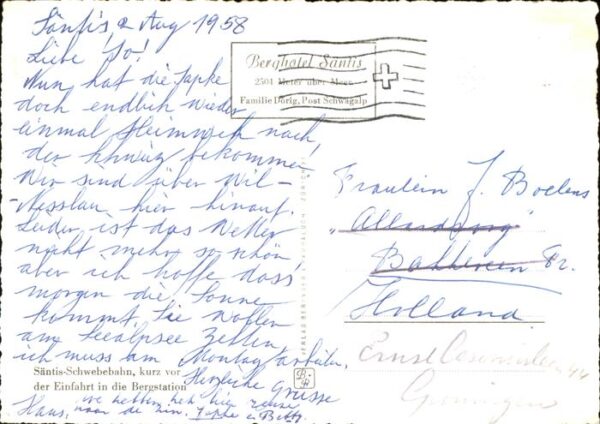 Säntis 2 Aug 1958
Liebe Jo!
Nun hat die Japke
doch endlich wieder
einmal Heimweh nach
der bekommen
Wir sind über Wil-
Nesslau hier hinauf.
Leider ist das Wetter
nicht mehr so schön
aber ich hoffe dass
morgen die Sonne
kommt. Sie wollen
am Seealpsee zelten
ich muss am Montag arbeiten.
Herzliche Grüsse
Hans,
we hebben het hier
naar de zin. Japke en
Berghotel Säntis
2504 Meter über Meer
Familie Dörig, Post Schwägalp
Fräulein J. Boelens
"Allardsoog"
Bakkeveen Fr.
Holland
Groningen
Säntis-Schwebebahn, kurz vor
der Einfahrt in die Bergstation